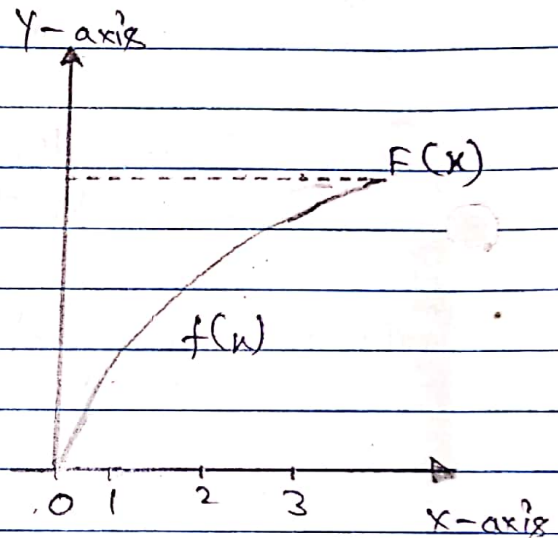 Y-axis
F(x)
f(x)
0 1 2 3
x-axis